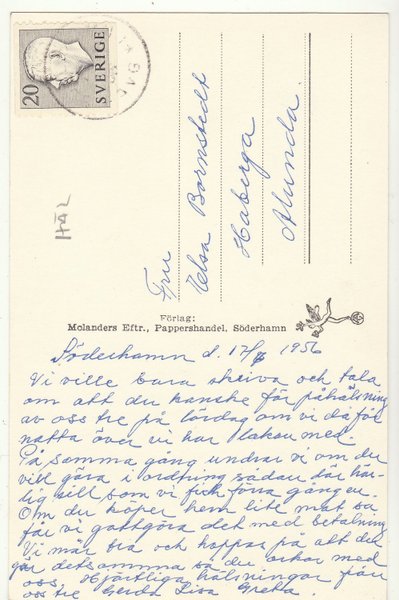 20
SVERIGE
HÄL
Fru
Elsa Bornstedt
Haberga
Alunda.
Förlag:
Molanders Eftr., Pappershandel, Söderhamn
Söderhamn d. 12/6 1956
Vi ville bara skriva och tala
om att du kanske får påhälsning
av oss tre på lördag om vi då får
natta över vi har lakan med.
På samma gång undrar vi om du
vill göra i ordning sådan där här-
lig sill som vi fick förra gången.
Om du köper hem lite mat så
får vi gottgöra det med betalning
Vi mår bra och hoppas på att du
gör detsamma så du orkar med
oss. Hjärtliga hälsningar från
oss tre Gerda Lisa Greta